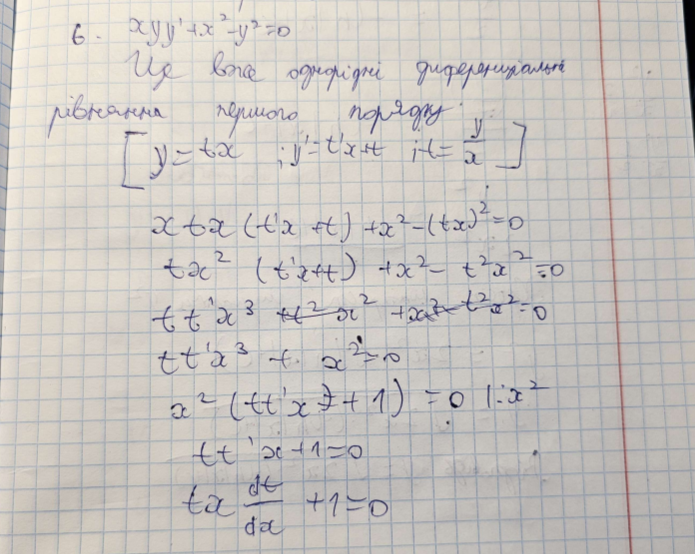 6. xyy' + x² - y² = 0
Це однорідні диференціальні
рівняння першого порядку.
[y = tx ; y' = t'x + t ; t = y/x]
x tx (t'x + t) + x² - (tx)² = 0
tx² (t'x + t) + x² - t²x² = 0
tt'x³ + t²x² + x² - t²x² = 0
tt'x³ + x² = 0
x² (tt'x + 1) = 0 |: x²
tt'x + 1 = 0
tx dt/dx + 1 = 0